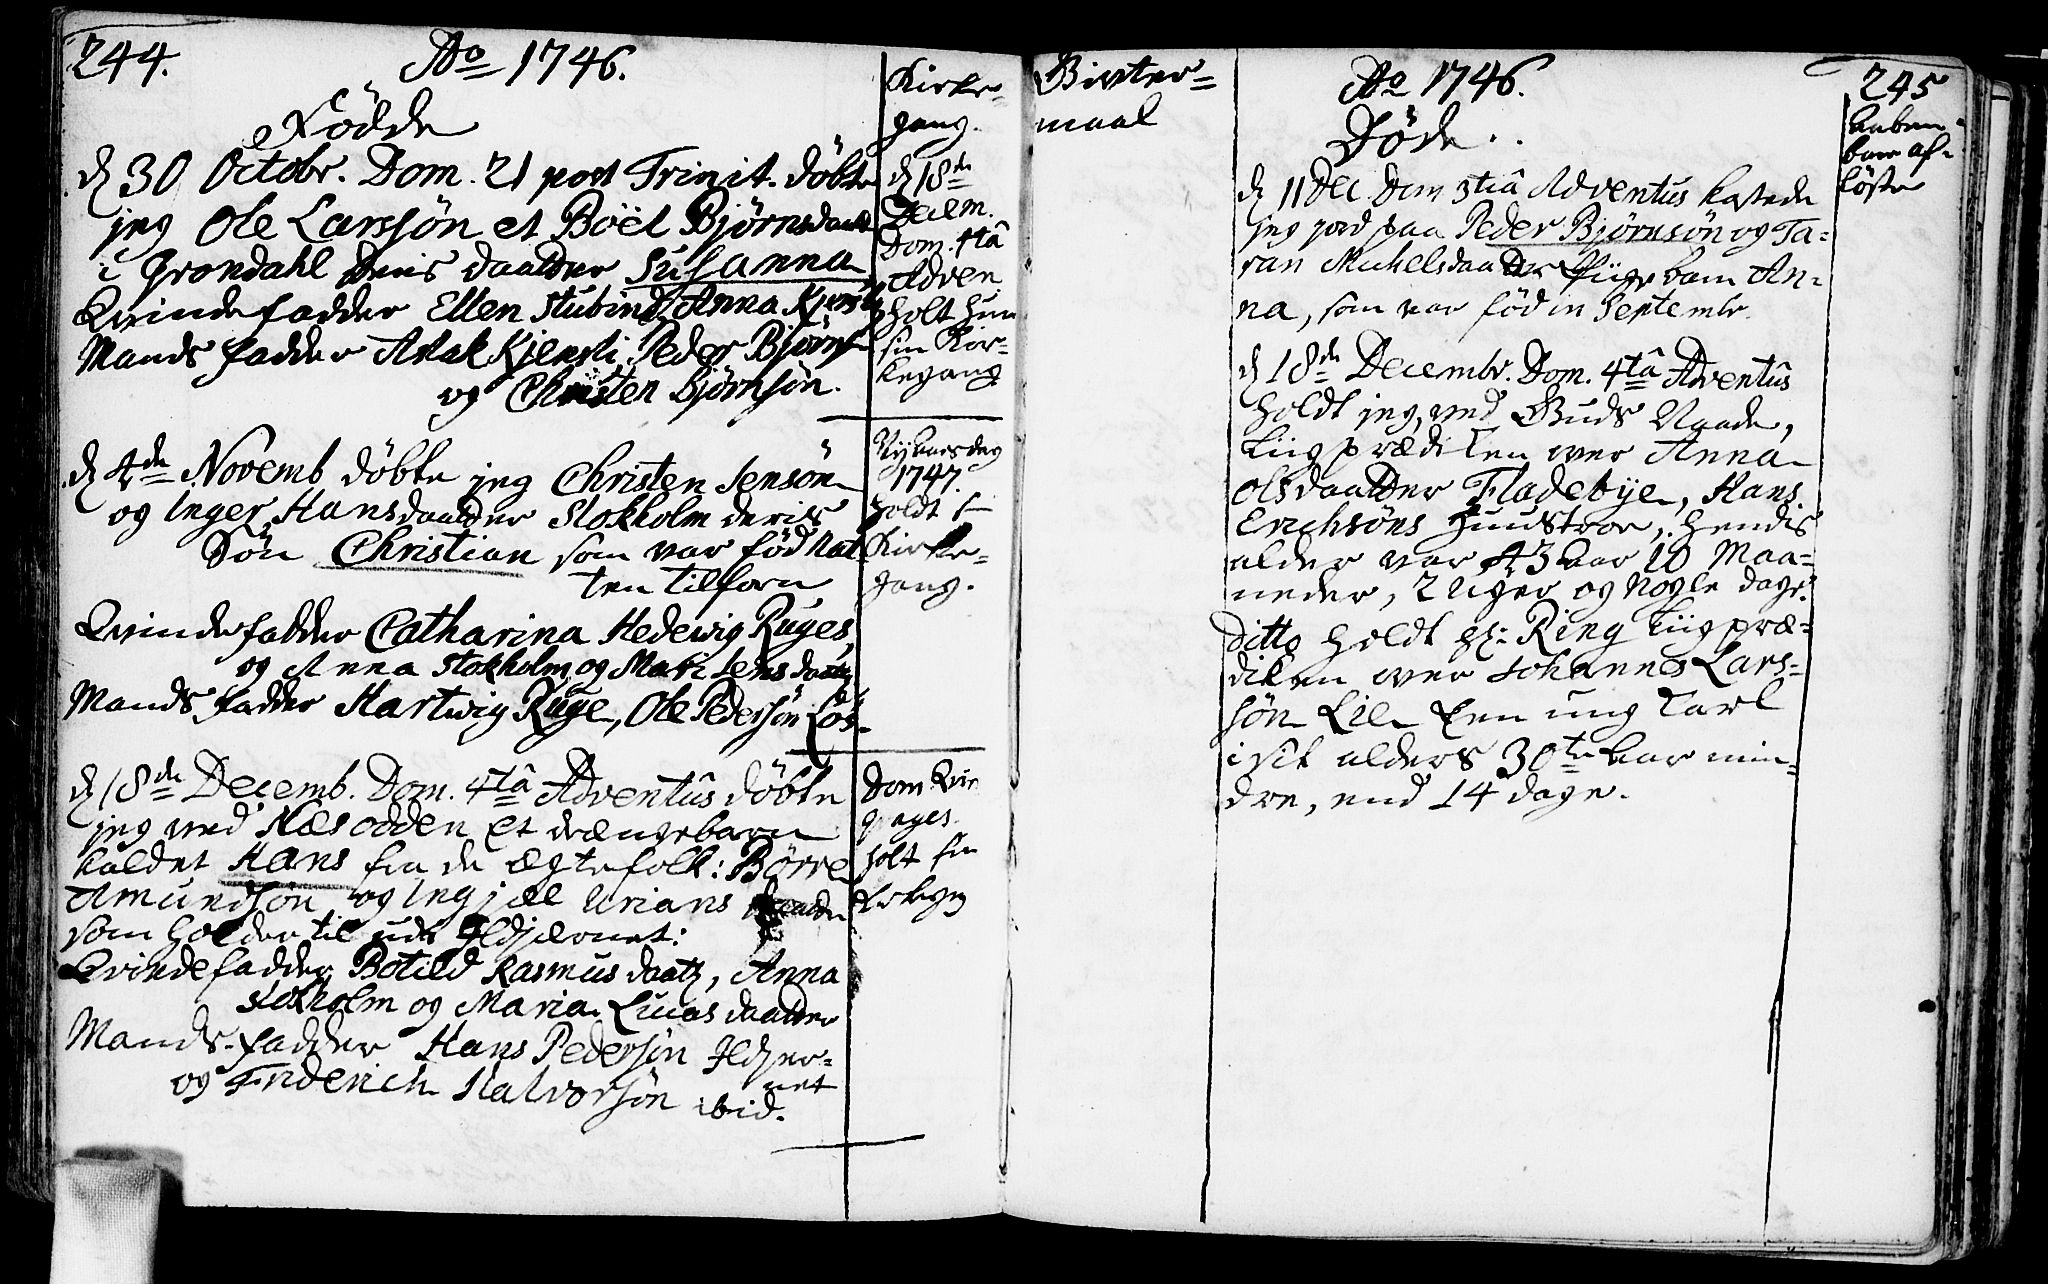 244. Ao 1746.
Fødde
d 30 Octobr. Dom. 21 post Trinit. døbte
jeg Ole Larssøn et Boël Bjørnsdaatt
i Grøndahl deris daatter Susanna
Qvindefadder Ellen Stubind, Anna
Mands fadder Aslak Kjensli, Peder Bjørns
og Christen Bjørnsøn.
d 4de Novemb døbte jeg Christen Jensøn
og Inger Hansdaatter Stokholm deris
Søn Christian som var fød nat-
ten tilforn
Qvindefadder Catharina Hedewig Ruges,
og Anna Stokholm og Mari Jens daatr
Mands fadder Hartwig Ruge, Ole Pedersøn
d 18de Decemb. Dom. 4tâ Adventûs døbte
jeg ved Næsodden et drængebarn
kaldet Hans fra de ægtefolk: Børre
Amundsøn og Ingjæl Urians daatr
som holder til ude Ildjærnet:
Qvindefadder Botild Rasmus daatr, Anna
Stokholm og Maria Lucas daatter
Mands-fadder Hans Pedersøn Ildjer-
net
og Friderich Halvorsøn ibid.
Kirke-
gang.
d 18de
Decem.
Dom. 4tâ
Adven
holt hun
sin Kir-
kegang
Nyt aarsdag
1747.
holdt s
Kirke-
gang.
Dom. Qvin
qvages.
holt sin
Bister-
maal
Ao 1746.
Døde.
d 11 Dec. Dom 3tiâ Adventus kastede
jeg jord paa Peder Bjørnsøn og Ta-
ran Michelsdaatter pige barn An-
na, som var fød in Septembr.
d 18de Decembr. Dom. 4tâ Adventûs
holdt jeg, ved Guds Naade,
Liigprædiken over Anna
Olsdaatter Fladebye, Hans
Erichsøns Huustroe, hendis
alder var 43 aar 10 Maa-
neder, 2 Uger og nogle dage.
Ditto holdt Hr: Ring Liigpræ-
diken over Johannes Lars-
søn Lie een ung Karl
i sit alders 30te aar min-
dre, end 14 dage.
245
Aaben-
bare af-
løste